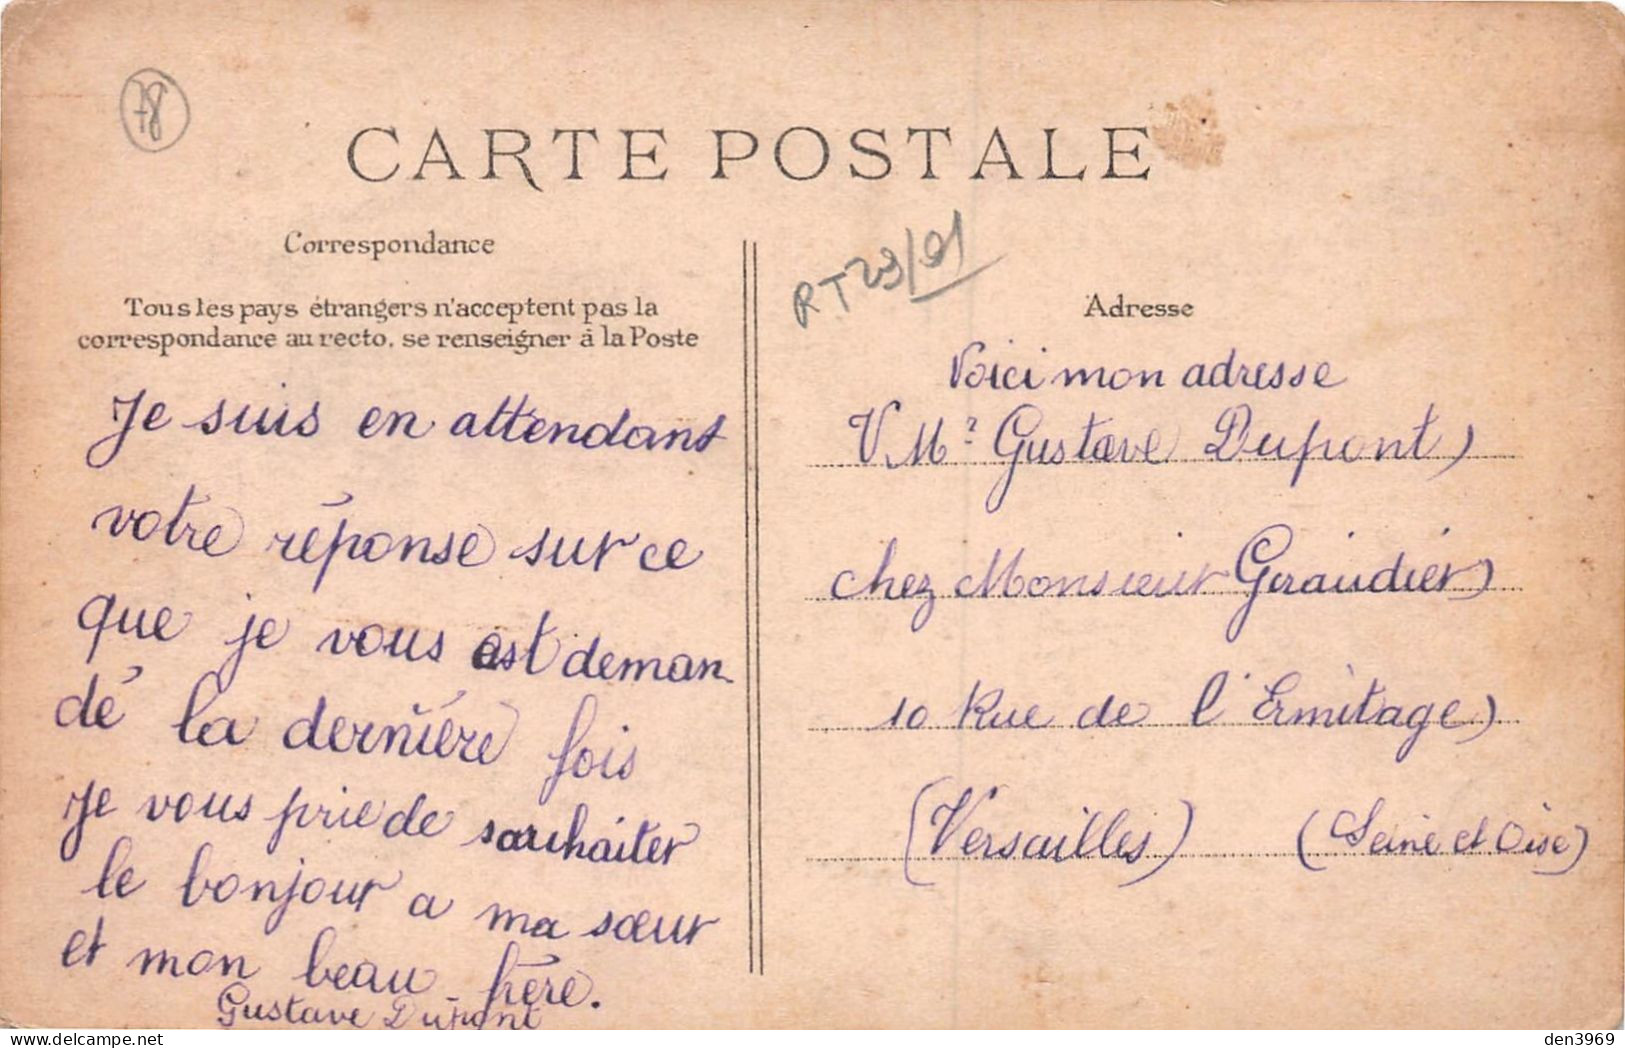 78
CARTE POSTALE
Correspondance
Tous les pays étrangers n'acceptent pas la
correspondance au recto, se renseigner à la Poste
Je suis en attendant
votre réponse sur ce
que je vous est deman
dé la dernière fois
Je vous prie de souhaiter
le bonjour a ma sœur
et mon beau frère.
Gustave Dupont
RT 23/91
Adresse
Voici mon adresse
V Mr Gustave Dupont
chez Monsieur Geraudier
10 Rue de l'Ermitage
(Versailles) (Seine et Oise)
den3969